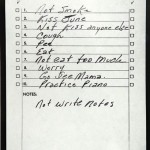 1. Not Smoke
2. Kiss June
3. Not Kiss anyone else
4. Cough
5. Pee
6. Eat
7. Not eat too much
8. Worry
9. Go See Mama
10. Practice Piano
NOTES:
Not Write Notes